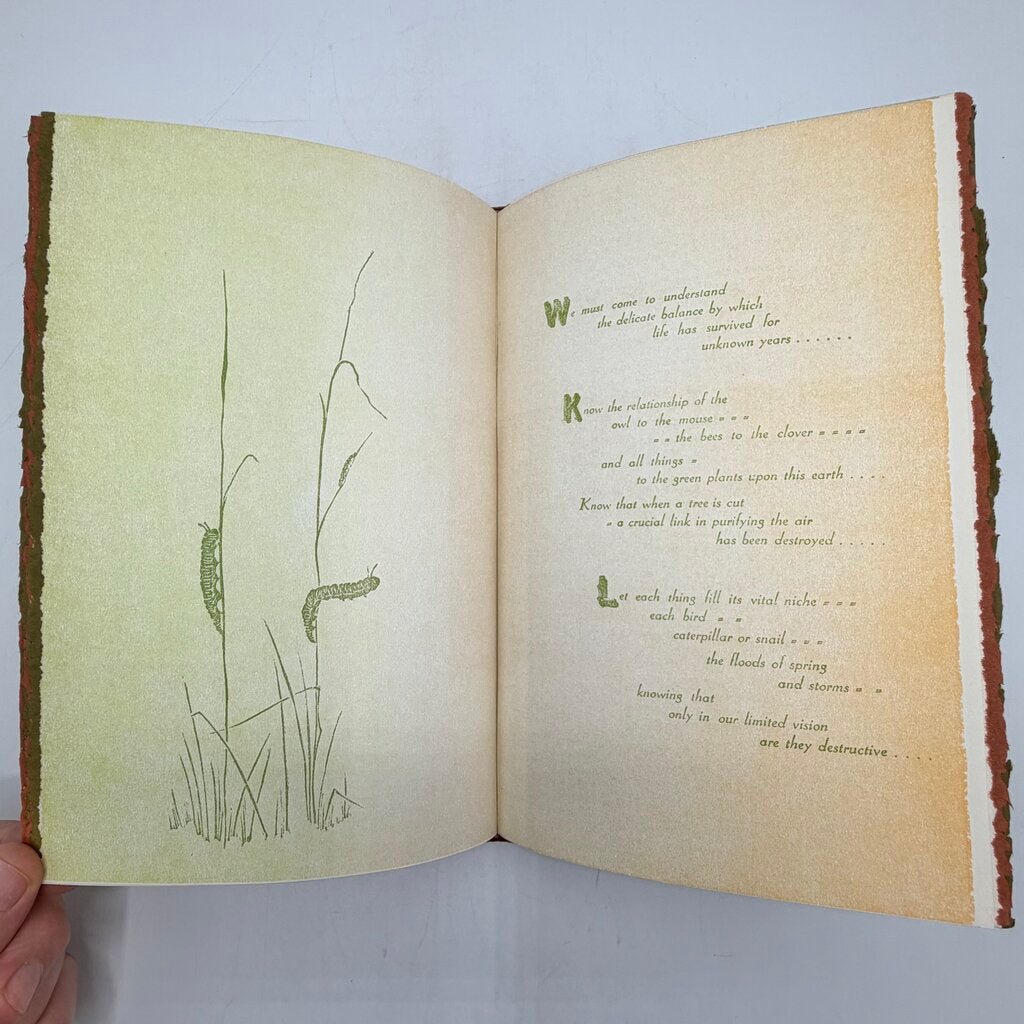 We must come to understand
the delicate balance by which
life has survived for
unknown years . . . . . .
Know the relationship of the
owl to the mouse = = =
= = the bees to the clover = = = =
and all things =
to the green plants upon this earth . . . .
Know that when a tree is cut
= a crucial link in purifying the air
has been destroyed . . . . .
Let each thing fill its vital niche = = =
each bird = =
caterpillar or snail = = =
the floods of spring
and storms = =
knowing that
only in our limited vision
are they destructive . . . .